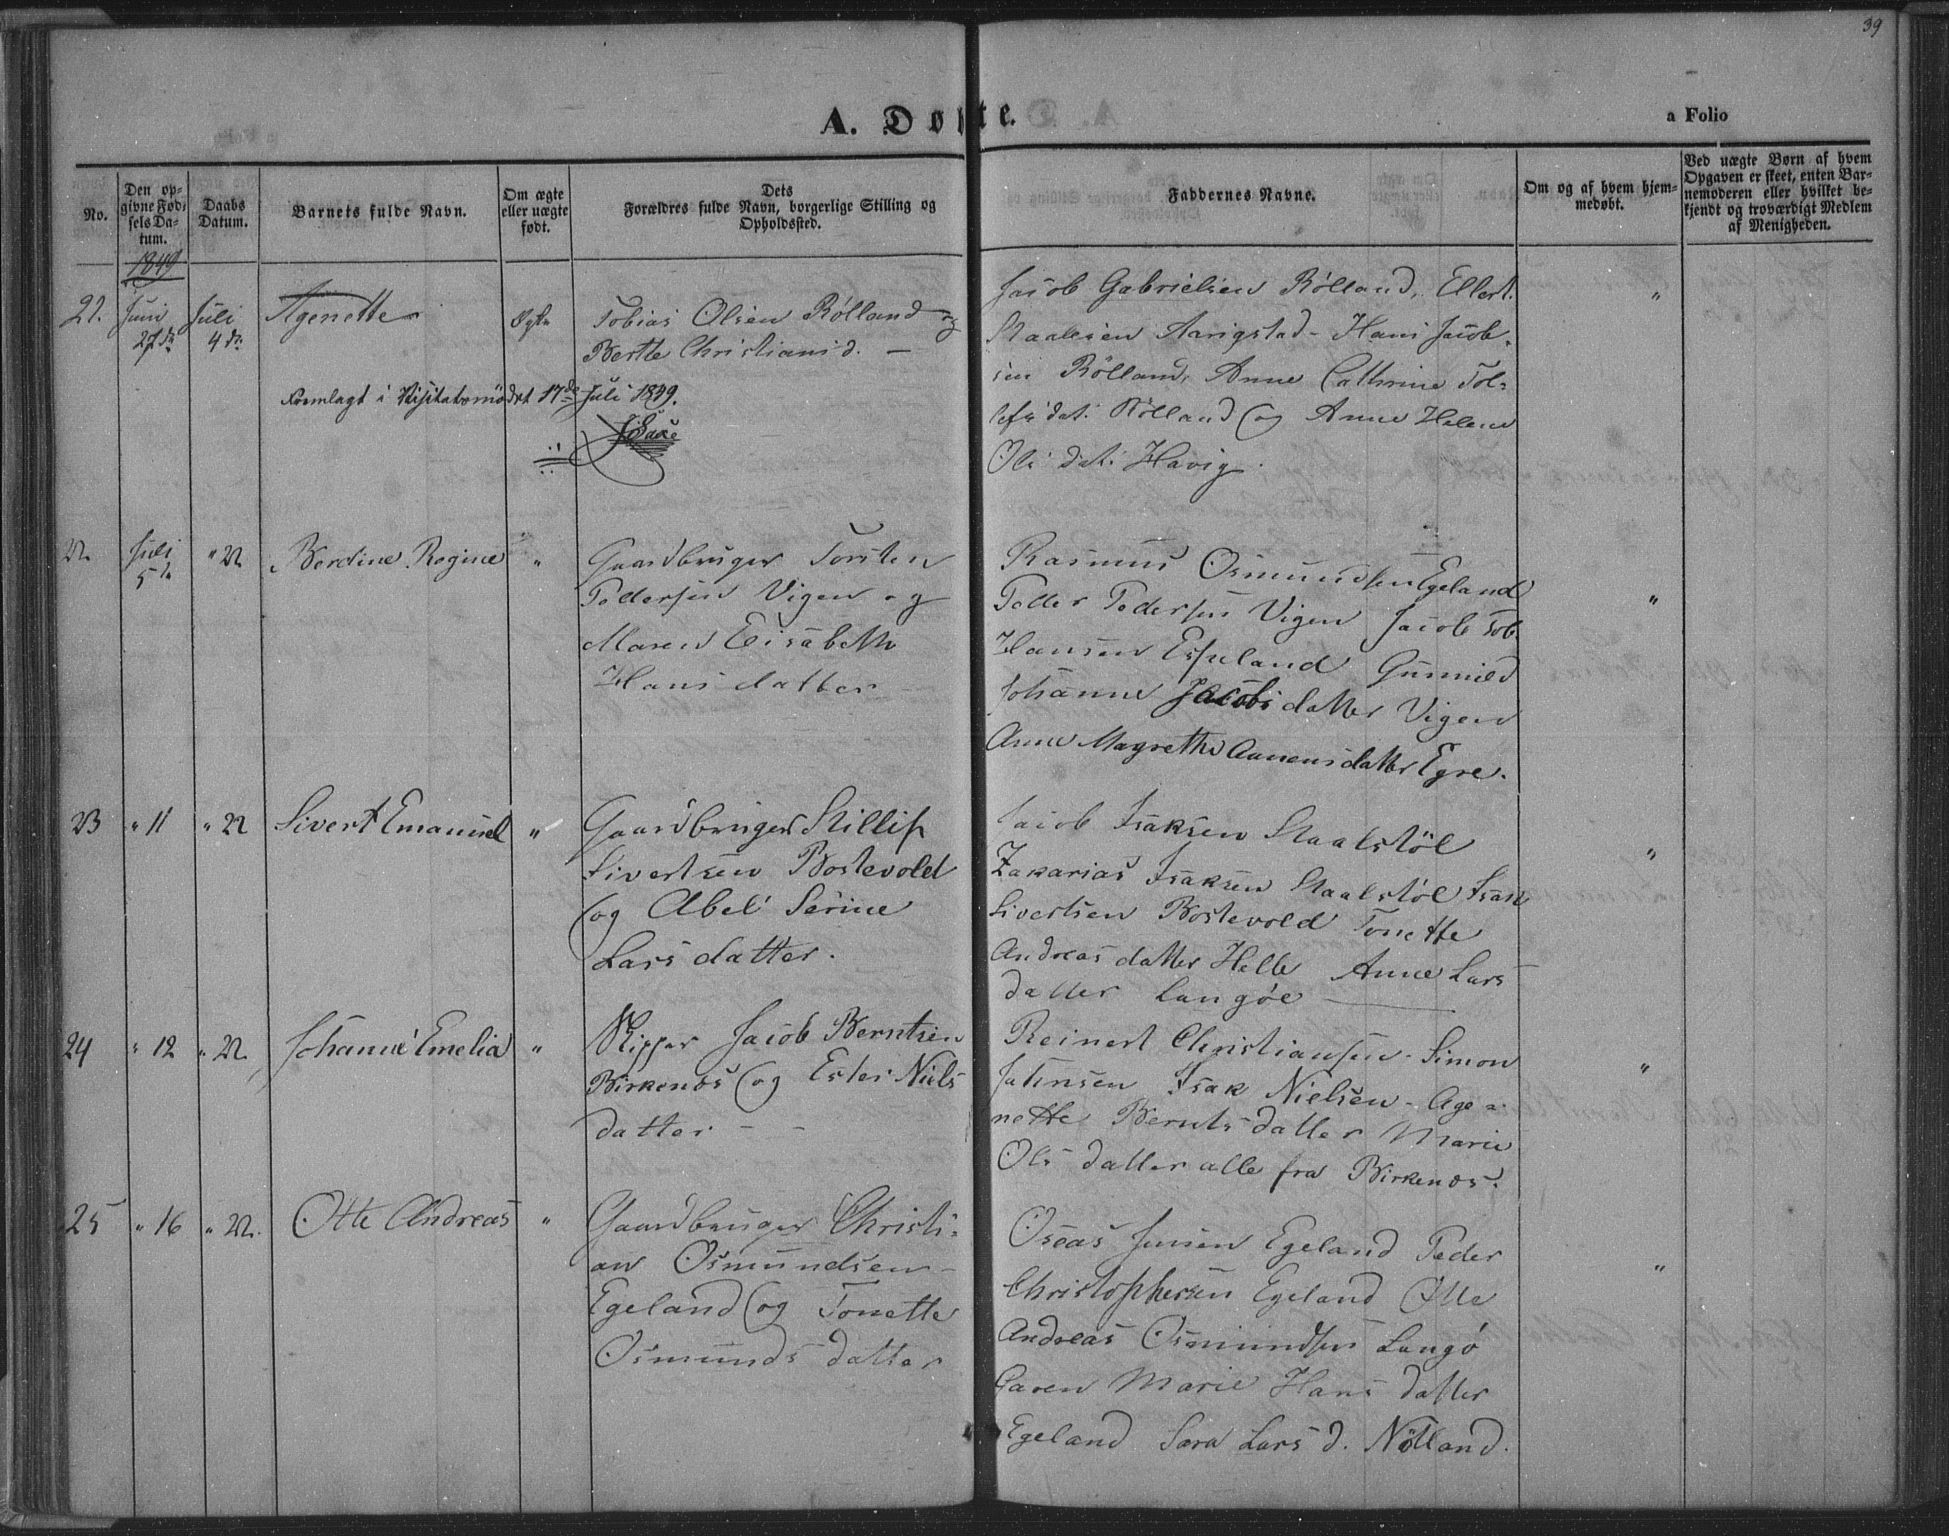 39
A. Døbte.
a Folio
No.
Den op-
givne Fød-
sels Da-
tum.
Daabs
Datum.
Barnets fulde Navn.
Om ægte
eller uægte
født.
Dets
Forældres fulde Navn, borgerlige Stilling og
Opholdssted.
Faddernes Navne.
Om og af hvem hjem-
medøbt.
Ved uægte Børn af hvem
Opgaven er skeet, enten Bar-
nemoderen eller hvilket be-
kjendt og troværdigt Medlem
af Menigheden.
1849
21.
Juni
27de
Juli
4de
Agenette
Ægte
Tobias Olsen Rölland og
Berthe Christiansd. —
Fremlagt i Visitatsmödet 17de Juli 1849.
Jacob Gabrielsen Rölland, Ellert
Staalesen Aarigstad - Hans Jacob-
sen Rölland, Anne Cathrine Tol-
lefsdat. Rölland og Anne Helene
Ols dat. Havig.
"
22
Juli
5te
" 22
Berdine Regine
"
Gaardbruger Torsten
Pedersen Vigen og
Maren Elisabeth
Hansdatter
Rasmus Osmundsen Egeland
Peder Pedersen Vigen Jacob Tob.
Hansen Espeland Gunnild
Johanne Jacobsdatter Vigen
Anne Magrethe Aanensdatter Egre.
"
23
" 11
" 22
Sivert Emanuel
"
Gaardbruger Phillip
Sivertsen Bostevold
og Abel Serine
Larsdatter.
Jacob Isaksen Staalstöl
Zakarias Isaksen Staalstöl Isak
Sivertsen Bostevold Tonette
Andreasdatter Helle Anne Lars
datter Langöe
"
24
" 12
" 22
Johanne Emelia
"
Skipper Jacob Berntsen
Birkenæs og Ester Niels
datter - -
Reinert Christiansen - Simon
Jakensen Isak Nielsen - Age-
nette Bernts datter Marie
Ols datter alle fra Birkenæs.
"
25
" 16
" 22.
Otte Andreas
"
Gaardbruger Christi-
an Osmundsen
Egeland og Tonette
Osmunds datter
Oseas Jensen Egeland Peder
Christophersen Egeland Otte
Andreas Osmundsen Langö
Caren Marie Hans datter
Egeland Sara Lars d. Nölland.
"